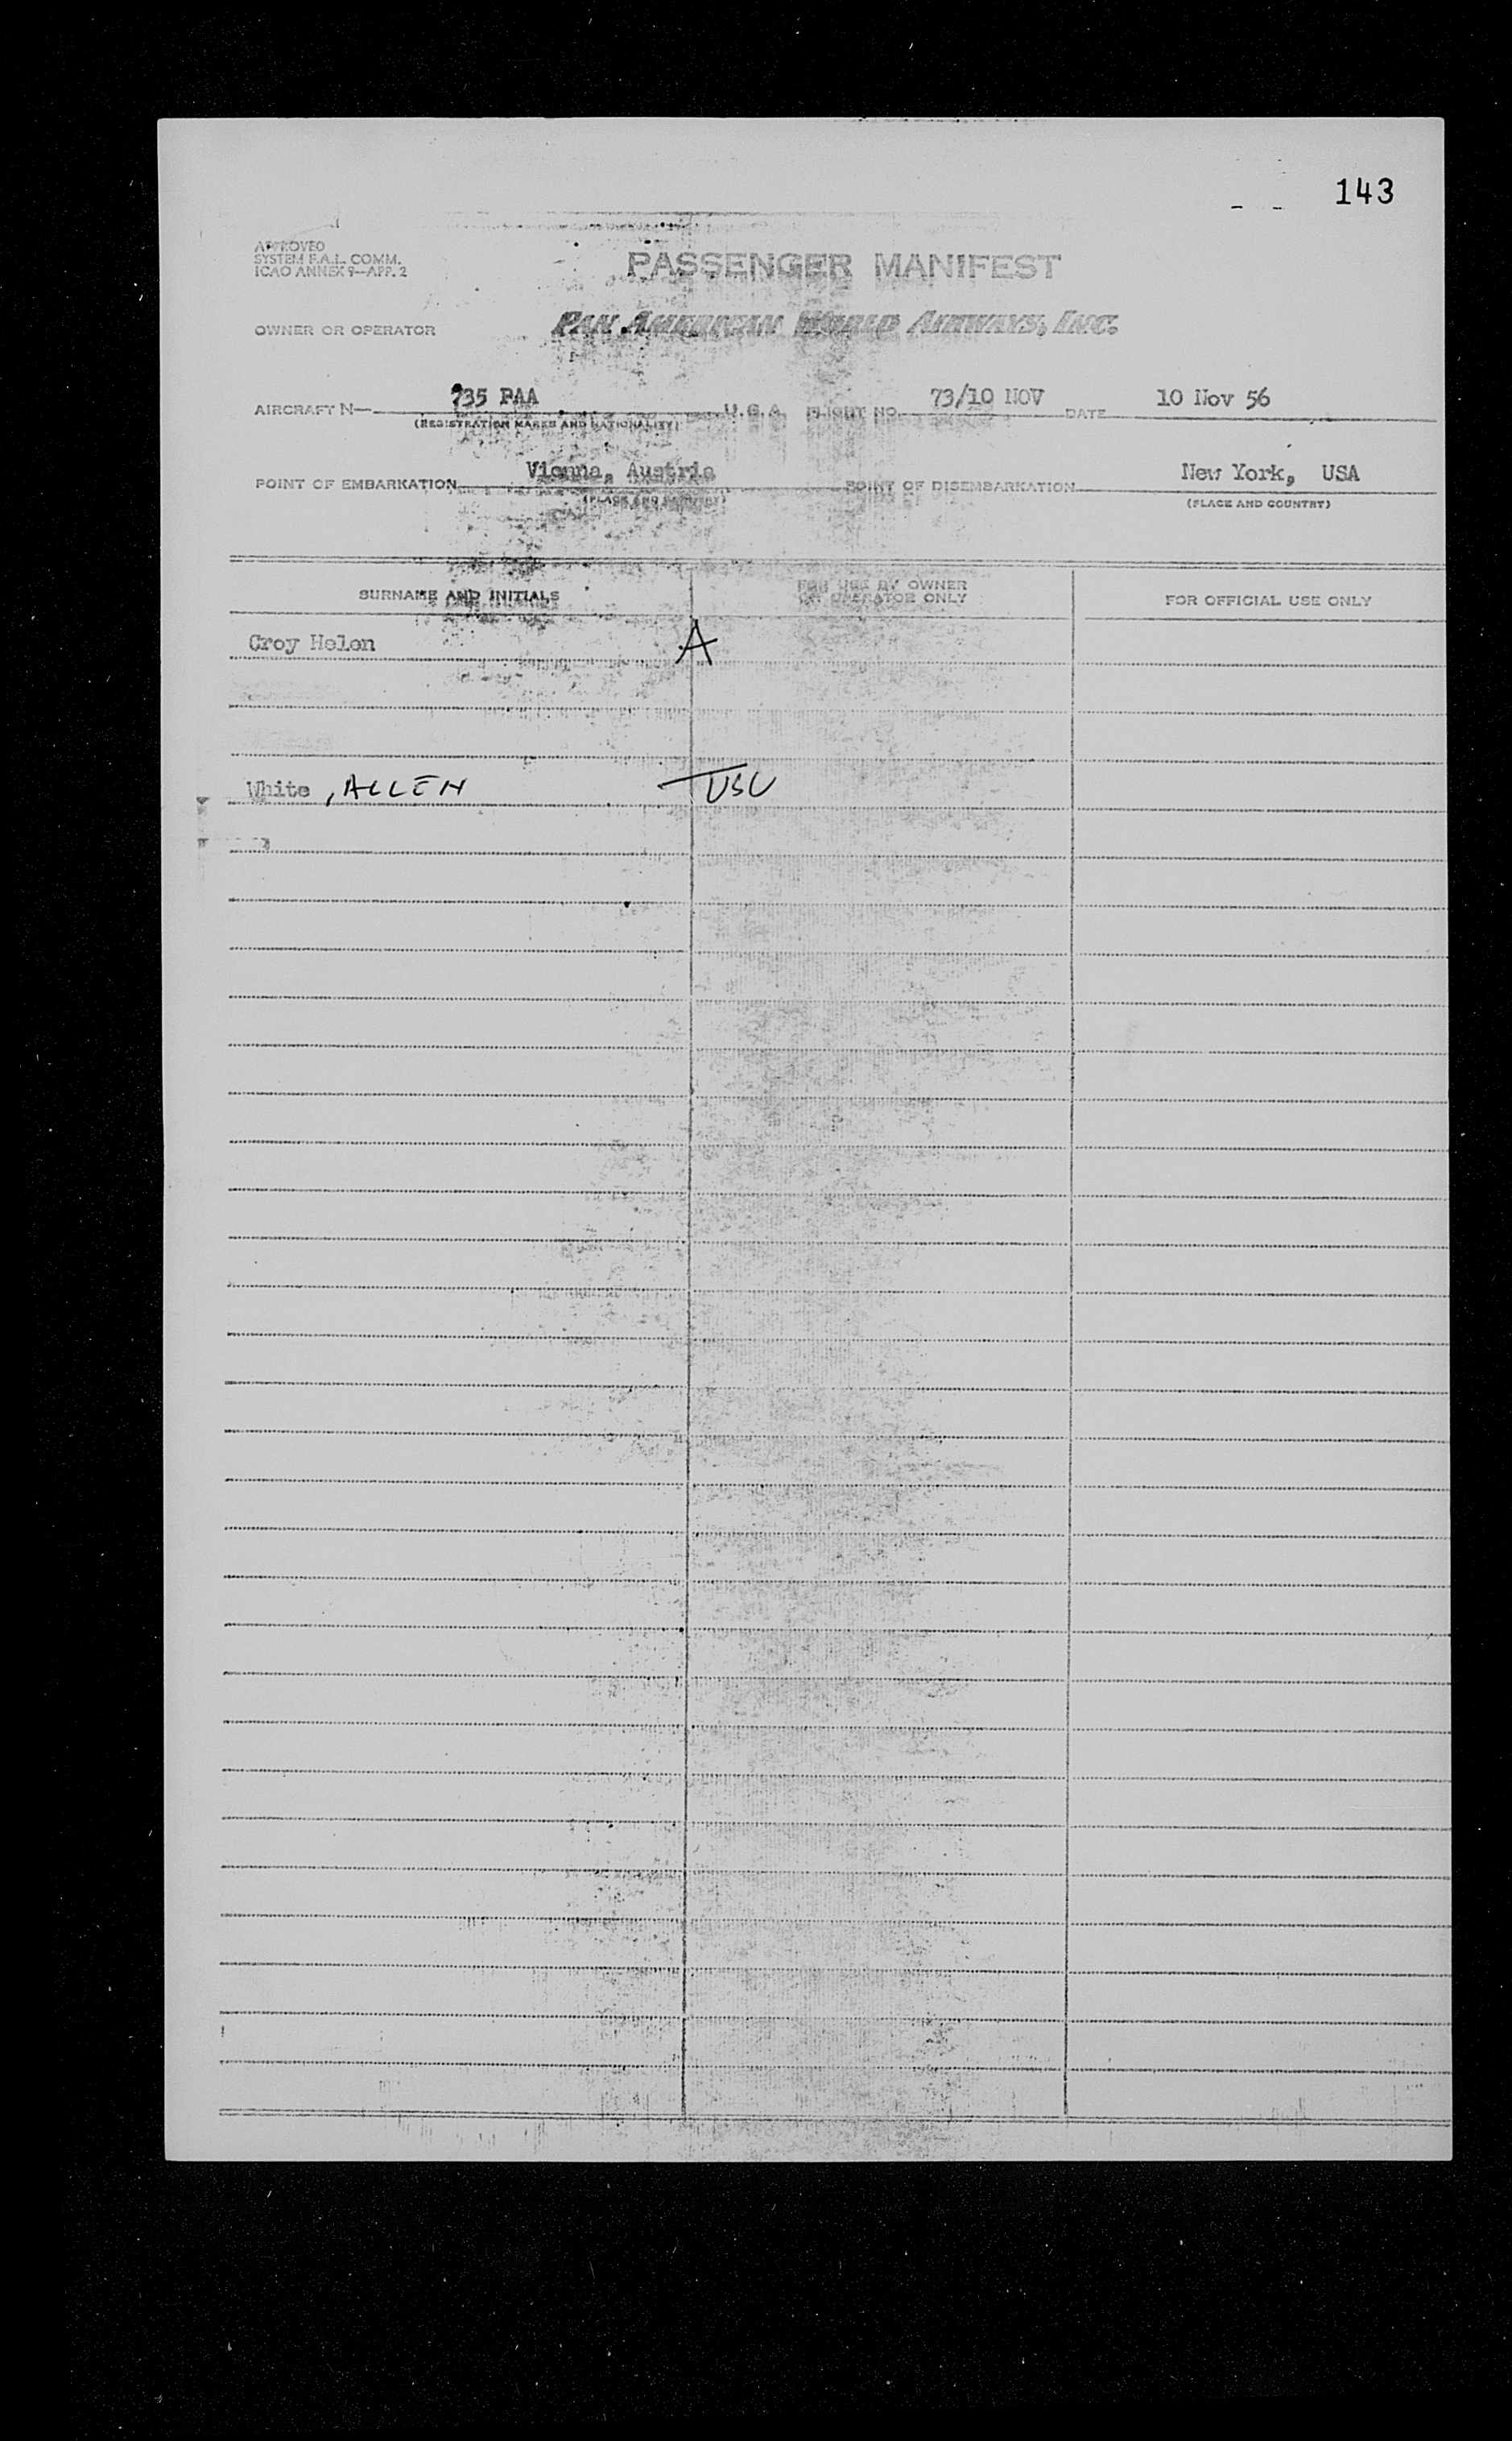 143
APPROVED
SYSTEM F.A.L. COMM.
ICAO ANNEX 9—APP. 2
PASSENGER MANIFEST
OWNER OR OPERATOR PAN AMERICAN WORLD AIRWAYS, INC.
AIRCRAFT N— 735 PAA U.S.A. FLIGHT NO. 73/10 NOV DATE 10 Nov 56
(REGISTRATION MARKS AND NATIONALITY)
POINT OF EMBARKATION Vienna, Austria POINT OF DISEMBARKATION New York, USA
(PLACE AND COUNTRY) (PLACE AND COUNTRY)
SURNAME AND INITIALS FOR USE BY OWNER OR OPERATOR ONLY FOR OFFICIAL USE ONLY
Croy Helen A
White , ALLEN